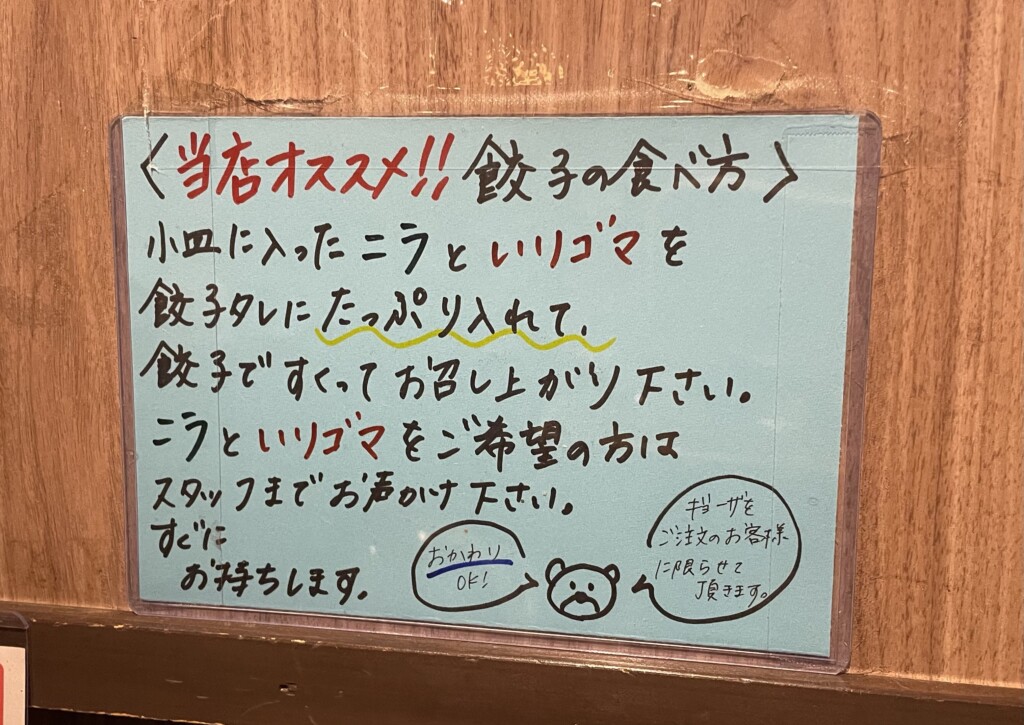 〈当店オススメ!! 餃子の食べ方〉
小皿に入ったニラといりゴマを
餃子タレにたっぷり入れて、
餃子ですくってお召し上がり下さい。
ニラといりゴマをご希望の方は
スタッフまでお声がけ下さい。
すぐに
お持ちします。
おかわり
OK!
ギョーザを
ご注文のお客様
に限らせて
頂きます。